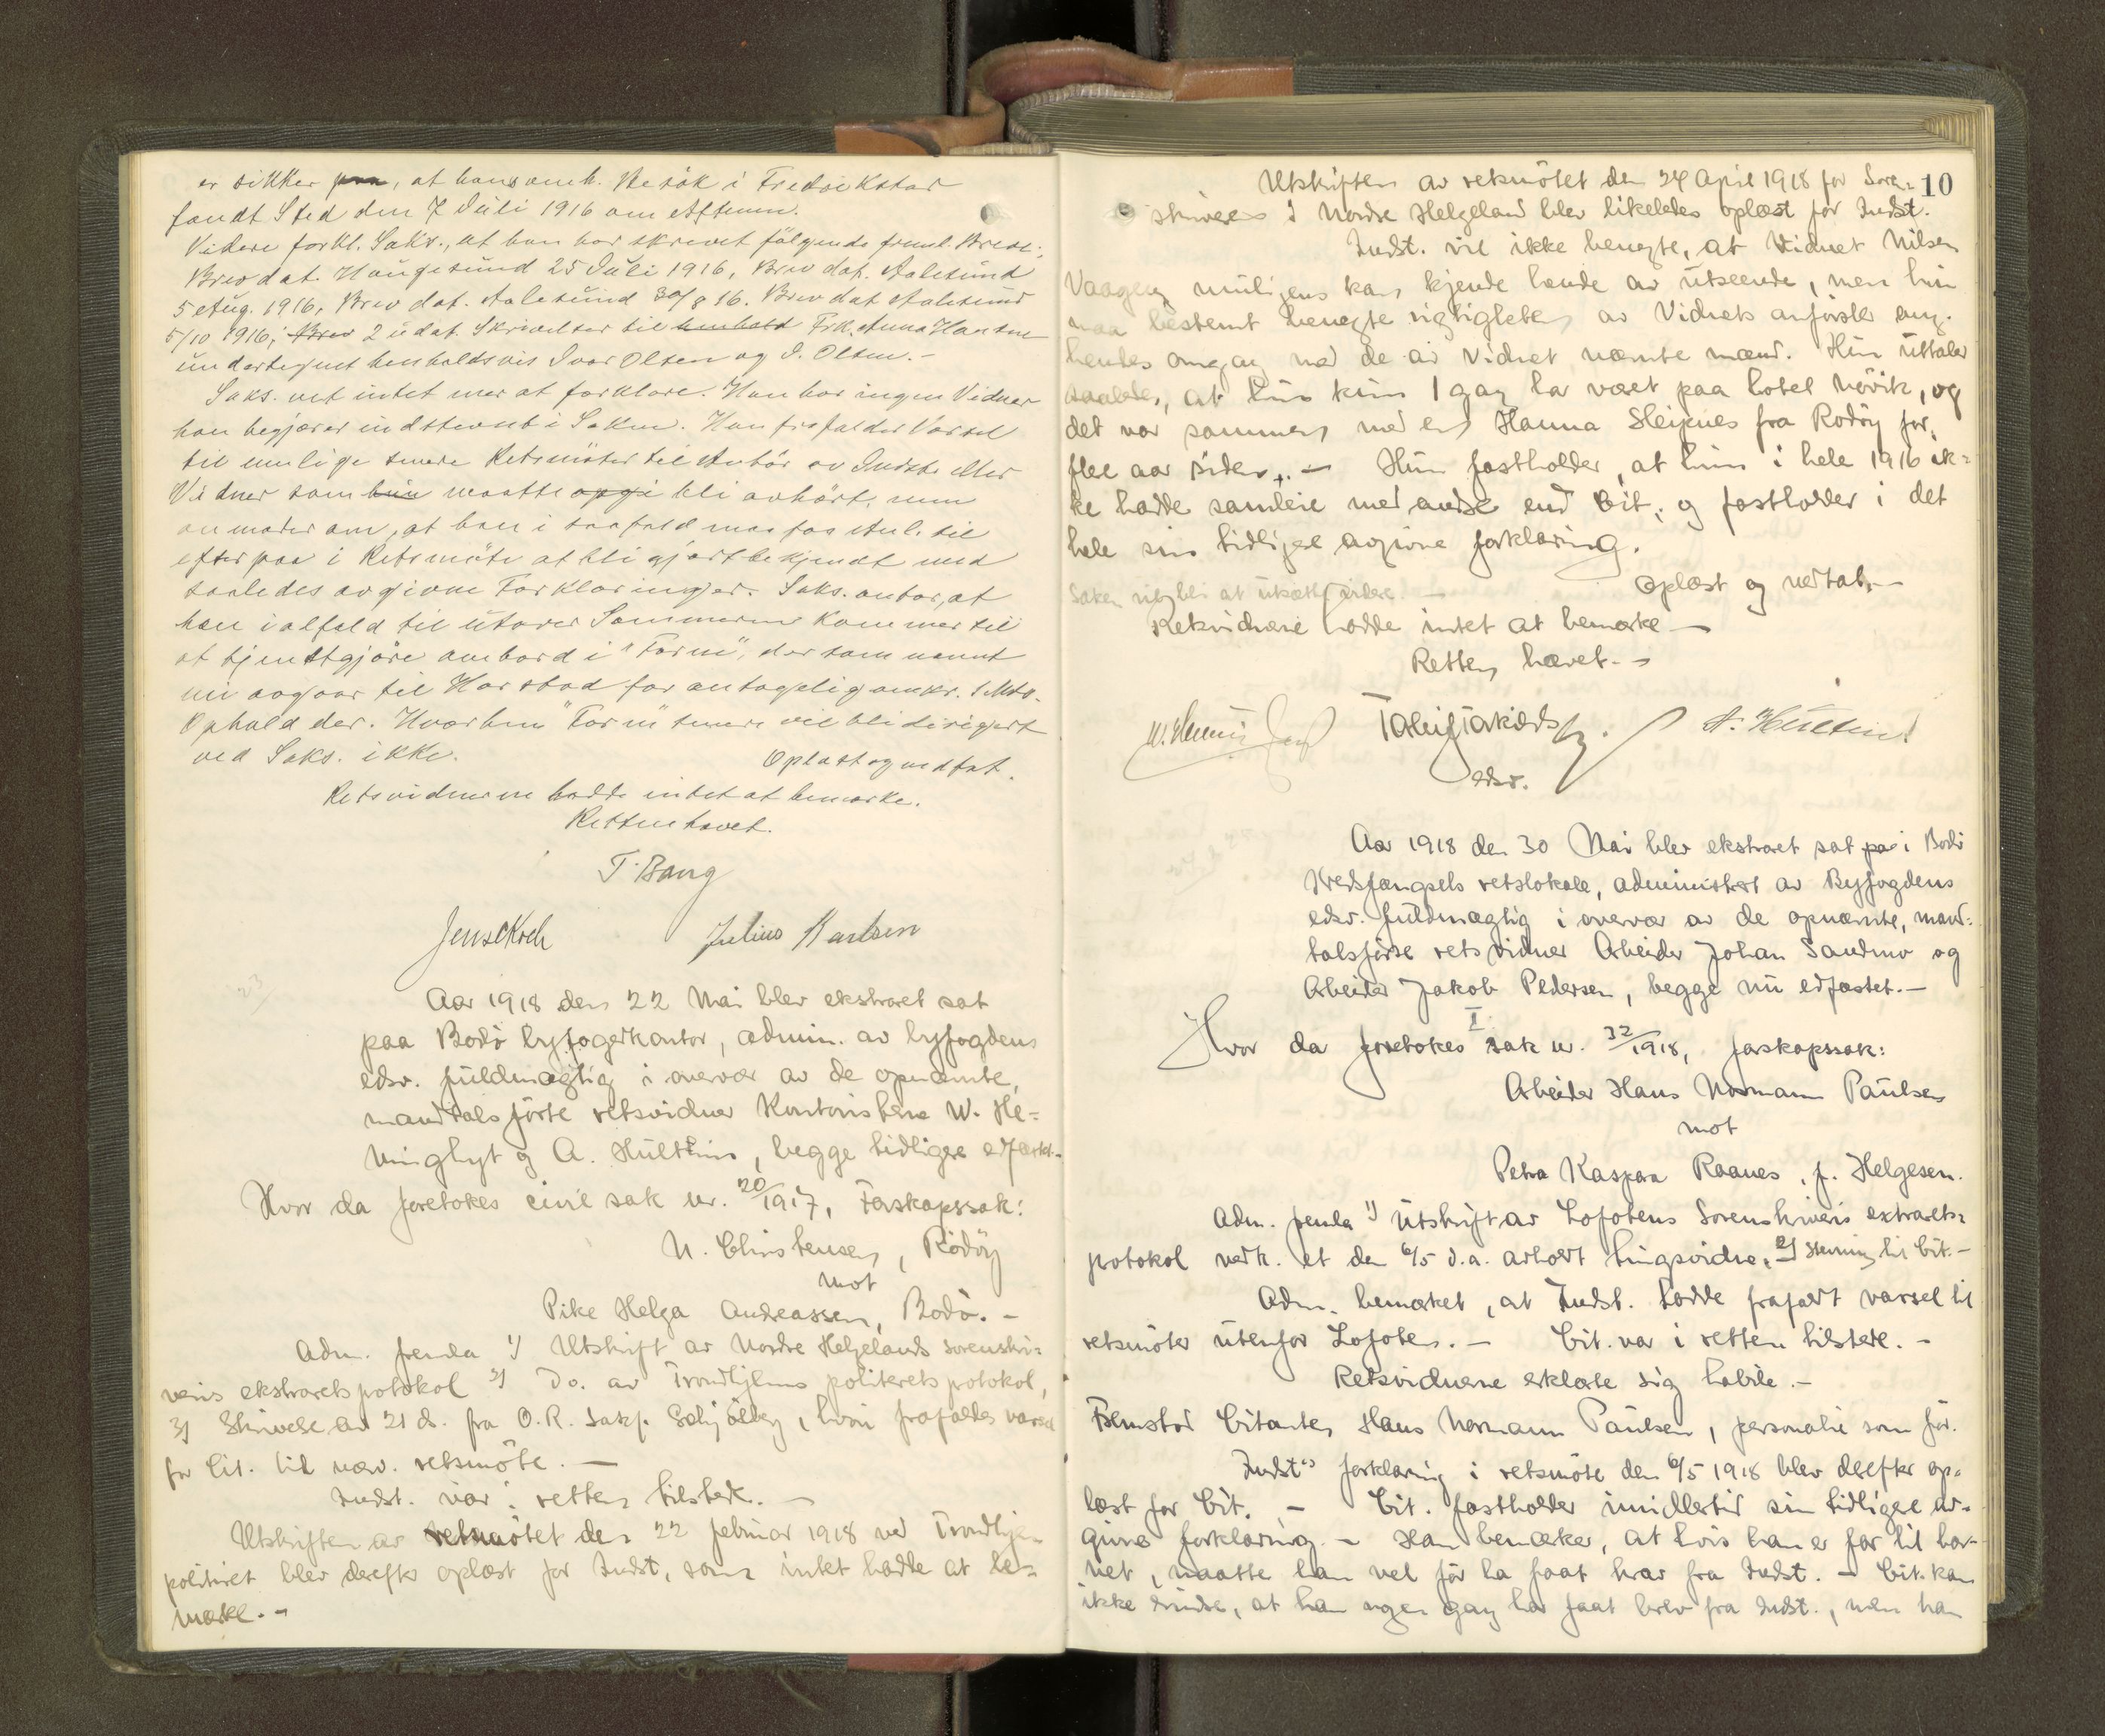 er sikker paa, at hans omh. Besök i Fredrikstad
fandt Sted den 7 Juli 1916 om Aftenen.
Videre forkl. Saks., at han har skrevet fölgende freml. Breve:
Brev dat. Haugesund 25 Juli 1916, Brev dat. Aalesund
5 Aug. 1916, Brev dat. Aalesund 30/8 16. Brev dat Aalesund
5/10 1916, Brev 2 udat. Skrivelser til Frk. Anna Hansen
undertegnet henholdsvis Ivar Olsen og I. Olsen.-
Saks. vet intet mer at forklare. Han har ingen Vidner
han begjærer indstevnt i Saken. Han frafalder Varsel
til mulige senere Retsmöter til Avhör av Indst. eller
Vidner som hun maatte opgi bli avhört, men
anmoder om, at han i saafald maa faa Anl. til
efterpaa i Retsmöte at bli gjort bekjendt med
saaledes avgivne Forklaringer. Saks. antar, at
han ialfald til utover Sommeren kommer til
at tjenstgjöre ombord i "Farm", der som nævnt
nu avgaar til Harstad for antagelig omkr. 1 Mds.
Ophold der. Hvorhen "Farm" senere vil bli dirigert
ved Saks. ikke.
Oplæst og vedtat.
Retsvidnerne hadde intet at bemærke.
Retten hævet.
T. Bang
Jens Koch Julius Karlsen
23/
Aar 1918 den 22 Mai blev ekstraret sat
paa Bodö byfogedkontor, admin. av byfogdens
edsv. fuldmægtig i overvær av de opnævnte,
mandtalsförte retsvidner Kontoristene W. He=
ninghyt og A. Hultin, begge tidligere edfæstet.-
Hvor da foretokes civil sak nr. 20/1917, Farskapssak:
N. Christensen, Rödöy
mot
Pike Helga Andreassen, Bodö. -
Adm. fremla 1) Utskrift av Nordre Helgelands sorenskri=
vers ekstraretsprotokol 2) Do. av Trondhjems politirets protokol,
3) Skrivelse av 21 ds. fra O.R. Sakf. Schjölberg, hvori frafaldes varsel
for Cit. til nærv. retsmöte. -
Indst. var i retten tilstede. -
Utskriften av retsmötet den 22 februar 1918 ved Trondhjem
politiret blev derefter oplæst for Indst., som intet hadde at be=
mærke. -
10
Utskriften av retsmötet den 24 April 1918 for Soren=
skriveren i Nordre Helgeland blev likeledes oplæst for Indst.
Indst. vil ikke benegte, at Vidnet Nilsen
Vaagen muligens kan kjende hende av utseende, men hun
maa bestemt benegte rigtigheten av Vidnets anförsler ang.
hendes omgang med de av Vidnet nævnte mænd. Hun uttaler
saaledes, at hun kun 1 gang har været paa hotel Növik, og
det var sammen med en Hanna Sleipnes fra Rödöy for
flere aar siden. - Hun fastholder, at hun i hele 1916 ik=
ke hadde samleie med andre end Cit., og fastholder i det
hele sin tidligere avgivne forklaring.
Oplæst og vedtat. -
Saken vil bli at utsætte videre. -
Retsvidnene hadde intet at bemærke -
Retten hævet. -
A. Hultin
edsv.
Aar 1918 den 30 Mai blev ekstraret sat paa i Bodö
Kredsfængsels retslokale, administrert av Byfogdens
edsv. fuldmægtig i overvær av de opnævnte, mand=
talsförte retsvidner Arbeider Johan Sandmo og
Arbeider Jakob Pedersen, begge nu edfæstet. -
I
Hvor da foretokes sak nr. 32/1918, farskapssak:
Arbeider Hans Normann Paulsen
mot
Petra Kaspara Raanes, f. Helgesen.
Adm. fremla 1) Utskrift av Lofotens Sorenskriveris extrarets=
protokol vedk. et den 6/5 d.a. avholdt tingsvidne, 2) Stevning til Cit. -
Adm. bemerket, at Indst. hadde frafaldt varsel til
retsmöter utenfor Lofoten. - Cit. var i retten tilstede. -
Retsvidnene erklærte sig habile. -
Fremstod Citanten Hans Normann Paulsen, personalie som för.
Indst's forklaring i retsmöte den 6/5 1918 blev derefter op=
læst for Cit. - Cit. fastholder imidlertid sin tidligere av=
givne forklaring. - Han bemerker, at hvis han er far til bar=
net, maatte han vel för ha faat krav fra Indst. - Cit. kan
ikke mindes, at han nogen gang har faat brev fra Indst., men han